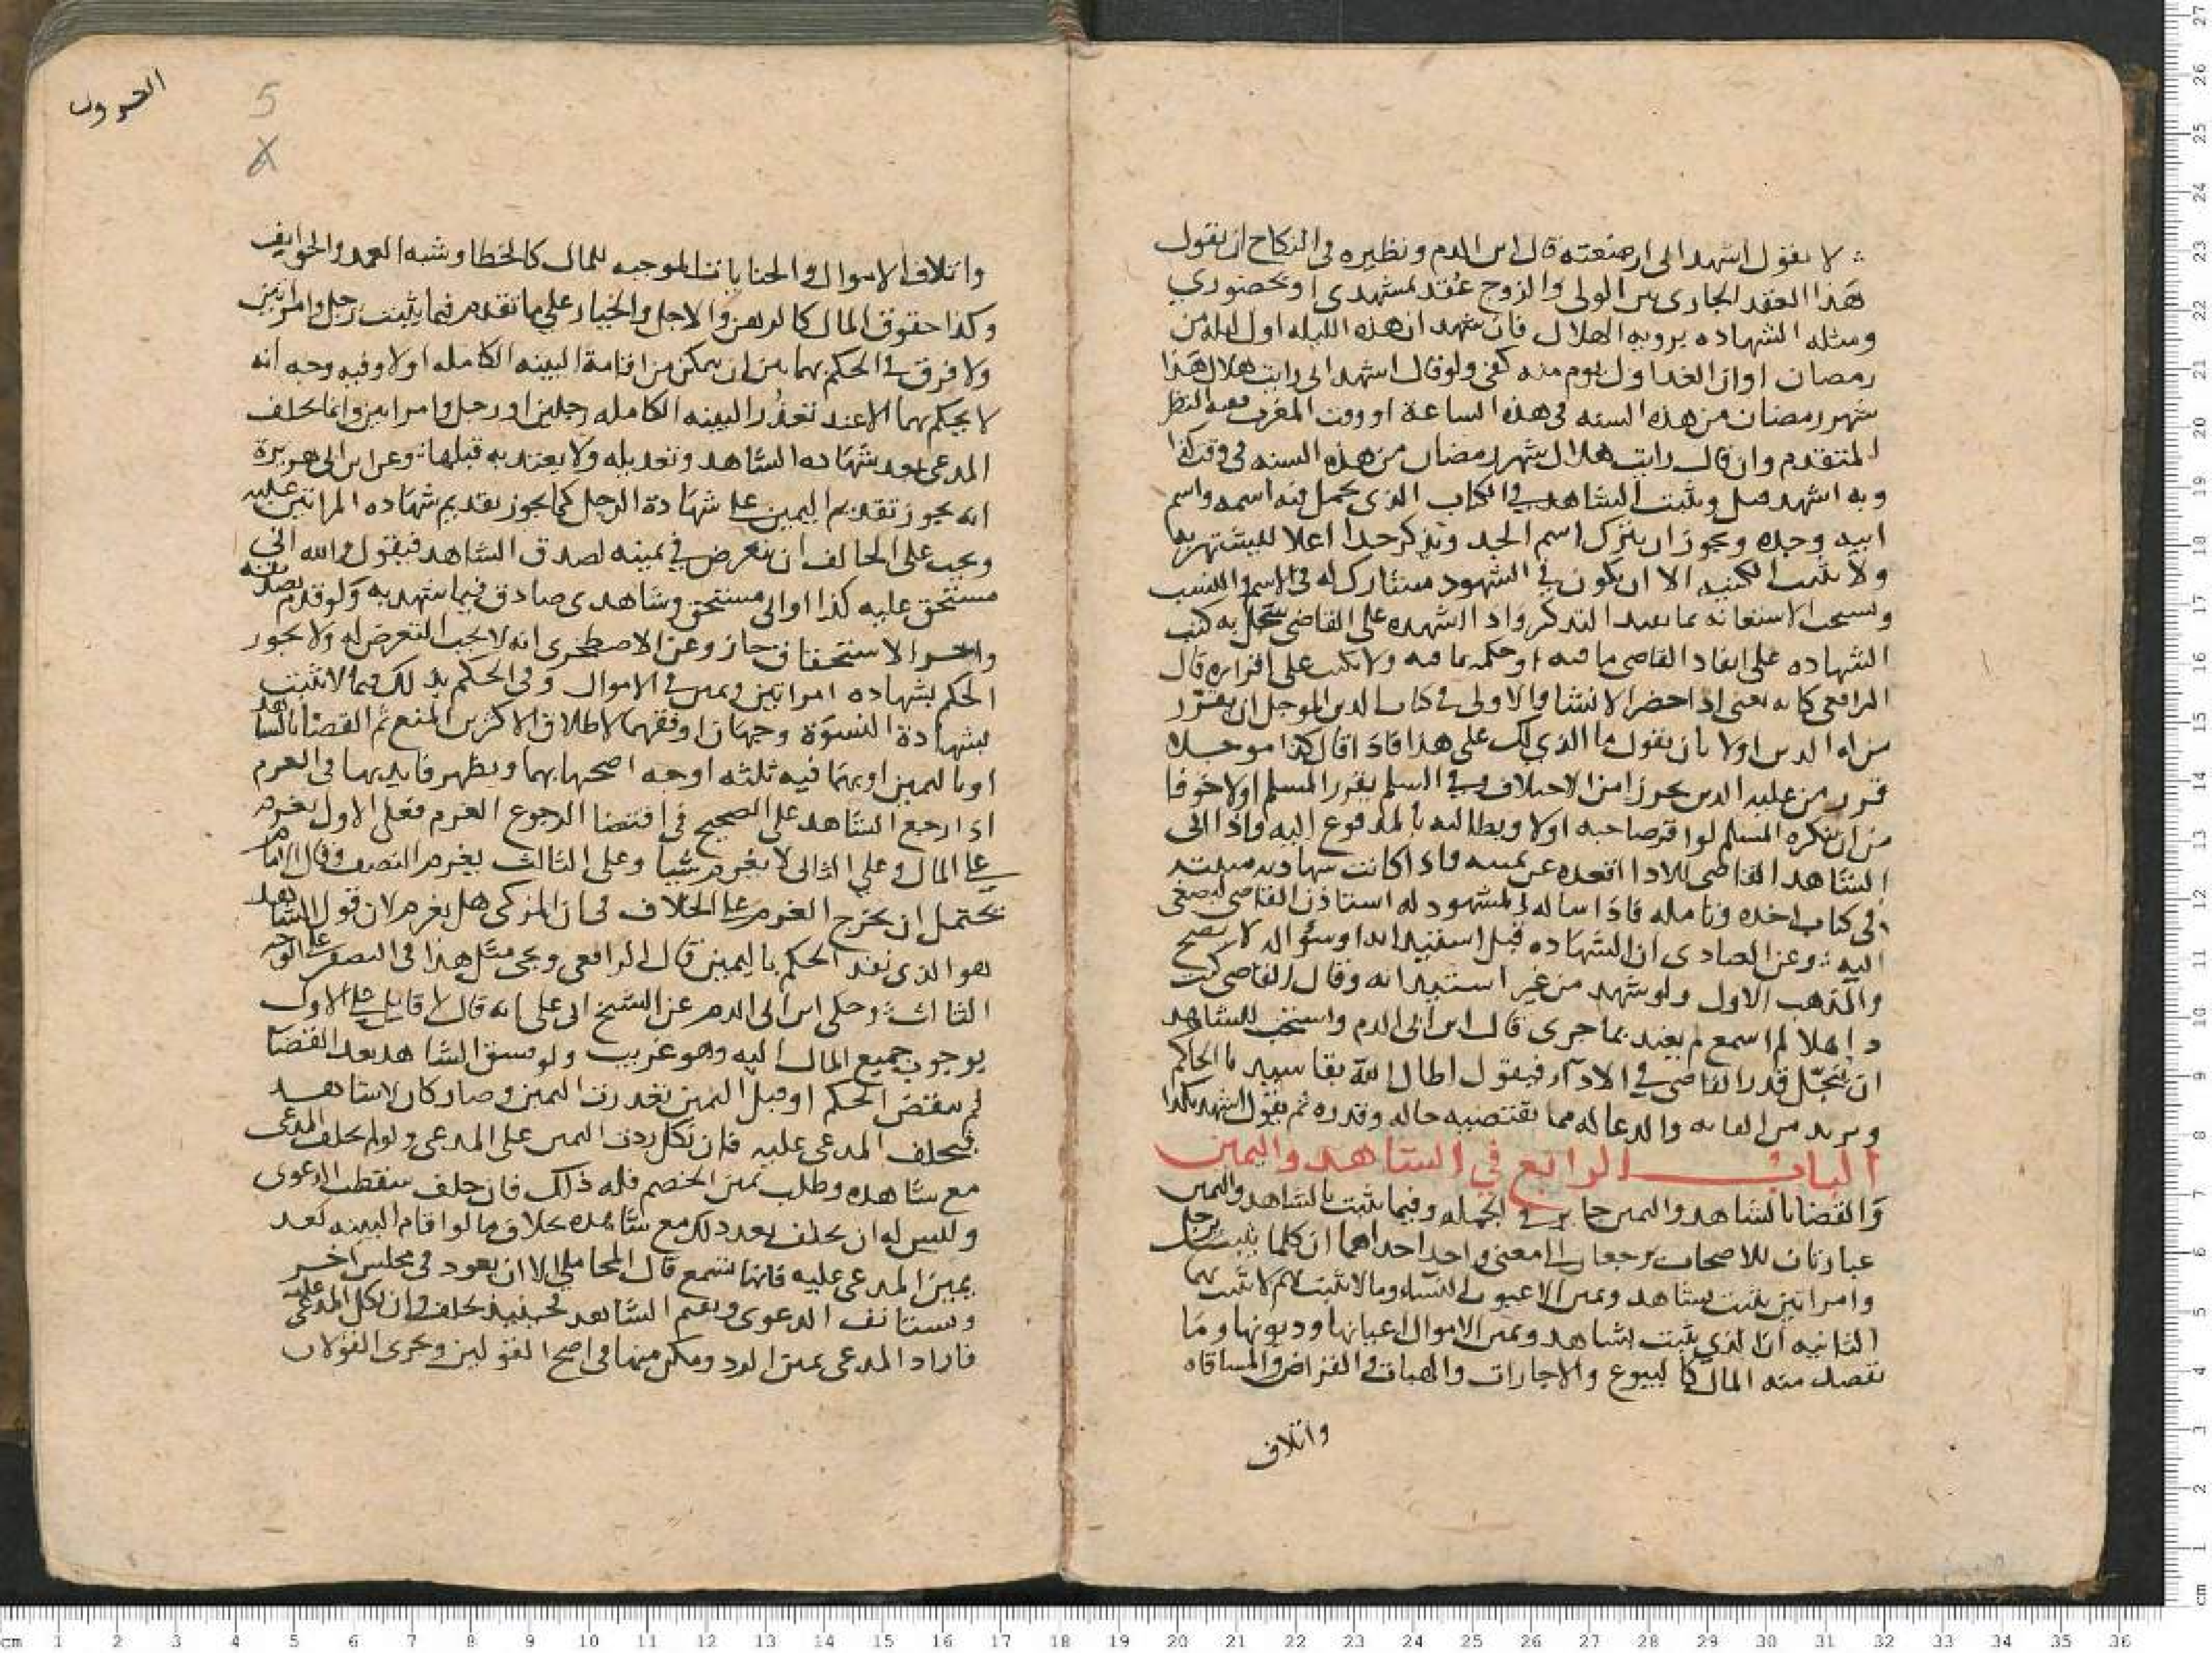 لا يقول اشهد اني ارضعته قال ابن ابي الدم ونظيره في النكاح ان يقول
هذا العقد الجاري بين الولي والزوج عقد بمشهدي او بحضوري
ومثله الشهاده برويه الهلال فان شهد ان هذه الليله اول ليله من
رمضان او ان الغد اول يوم منه كفى ولو قال اشهد اني رايت هلال هذا
شهر رمضان من هذه السنه في هذه الساعة او وقت المغرب ففيه النظر
المتقدم وان قال رايت هلال شهر رمضان من هذه السنه في وقت كذا
وبه اشهد قبل ويثبت الشاهد في الكتاب الذي يحمل فيه اسمه واسم
ابيه وجده ويجوز ان يترك اسم الجد ويذكر جدا اعلا للشهرته به
ولا يثبت الكنيه الا ان يكون في الشهود مشارك له في الاسم والنسب
ويستحب الاستعانه بما يفيد التذكر واذا اشهده على القاضي بسجل به كتب
الشهاده على انفاد القاضي ما فيه او حكمه بما فيه ولا يكتب على اقراره قال
الرافعي كانه يعني اذا حضر الانشا والاولى في كتاب الدين الموجل ان يقرر
من له الدين اولا بان يقول ما الذي لك على هذا فاذا قال كذا موجله
قرر من عليه الدين تحرزا من الاختلاف وفي السلم يقرر المسلم اولا خوفا
من ان ينكره المسلم لو اقر صاحبه اولا ويطالبه بالمدفوع اليه واذا اتى
الشاهد القاضي للادا اقعده عن يمينه واذا كانت شهادته مثبته
في كتاب اخذه وتامله فاذا ساله المشهود له استاذن القاضي ليصغي
اليه وعن الصادي ان الشهاده قبل استئذانه او سؤاله لا تصح
والمذهب الاول ولو شهد من غير استئذانه وقال القاضي كنت
ذاهلا لم اسمع لم يعتد بما جرى قال ابن ابي الدم واستحب للشاهد
ان يبجل قدر القاضي في الاداء فيقول اطال الله بقا سيدنا الحاكم
ويزيد من القابه والدعا له مما تقتضيه حاله وقدره ثم يقول اشهد بكذا
الباب الرابع في الشاهد واليمين
والقضا بالشاهد واليمين جايز في الجمله وفيما يثبت بالشاهد واليمين
عبارتان للاصحاب ترجعان الى معنى واحد احداهما ان كلما يثبت برجل
وامراتين يثبت بشاهد ويمين الا عيوب النساء وما لا يثبت بهم لا يثبت بهما
الثانيه ان الذي يثبت بشاهد ويمين الاموال اعيانها وديونها وما
يقصد منه المال كالبيوع والاجارات والهبات والقراض والمساقاه
واتلاف
5
واتلاف الاموال والجنايات الموجبه للمال كالخطا وشبه العمد والجوايف
وكذا حقوق المال كالرهن والاجل والخيار على ما تقدم فيما يثبت برجل وامراتين
ولا فرق في الحكم بهما بين ان يتمكن من اقامة البينه الكامله او لا وفيه وجه انه
لا يحكم بهما الا عند تعذر البينه الكامله رجلين او رجل وامراتين وانما يحلف
المدعي بعد شهاده الشاهد وتعديله ولا يعتد به قبلها وعن ابن ابي هريرة
انه يجوز تقديم اليمين على شهادة الرجل كما يجوز تقديم شهاده المراتين عليه
ويجب على الحالف ان يتعرض في يمينه لصدق الشاهد فيقول والله اني
مستحق عليه كذا او اني مستحق وشاهدي صادق فيما شهد به ولو قدم تصديقه
واخر الاستحقاق جاز وعن الاصطخري انه لا يجب التعرض له ولا يجوز
الحكم بشهاده امراتين ويمين في الاموال وفي الحكم بذلك فيما لا يثبت
بشهادة النسوة وجهان اوفقهما لاطلاق الاكثرين المنع ثم القضا بالشاهد
او باليمين او بهما فيه ثلثه اوجه اصحها بهما ويظهر فايدتها في الغرم
اذا رجع الشاهد على الصحيح في اقتضا الرجوع الغرم فعلى الاول يغرم
المال وعلى الثاني لا يغرم شيا وعلى الثالث يغرم النصف وقال الامام
يحتمل ان يخرج الغرم على الخلاف في ان المزكي هل يغرم لان قول الشاهد
هو الذي نفذ الحكم باليمين قال الرافعي ويجي مثل هذا في النصف على الوجه
الثالث وحكى ابن ابي الدم عن الشيخ ابي علي انه قال لا قايل على الاول
بوجوب جميع المال اليه وهو غريب ولو فسق الشاهد بعد القضا
لم ينقض الحكم او قبل اليمين تعذرت اليمين وصار كان لا شاهد
فيحلف المدعى عليه فان نكل ردت اليمين على المدعي ولو لم يحلف المدعي
مع شاهده وطلب يمين الخصم فله ذلك فان حلف سقطت الدعوى
وليس له ان يحلف بعد ذلك مع شاهده بخلاف ما لو اقام البينه بعد
يمين المدعى عليه فانها تسمع قال المحاملي الا ان يعود في مجلس اخر
ويستانف الدعوى ويقيم الشاهد فحينيذ يحلف وان نكل المدعى عليه
فاراد المدعي يمين الرد ومكن منها في اصح القولين ويجري القولان